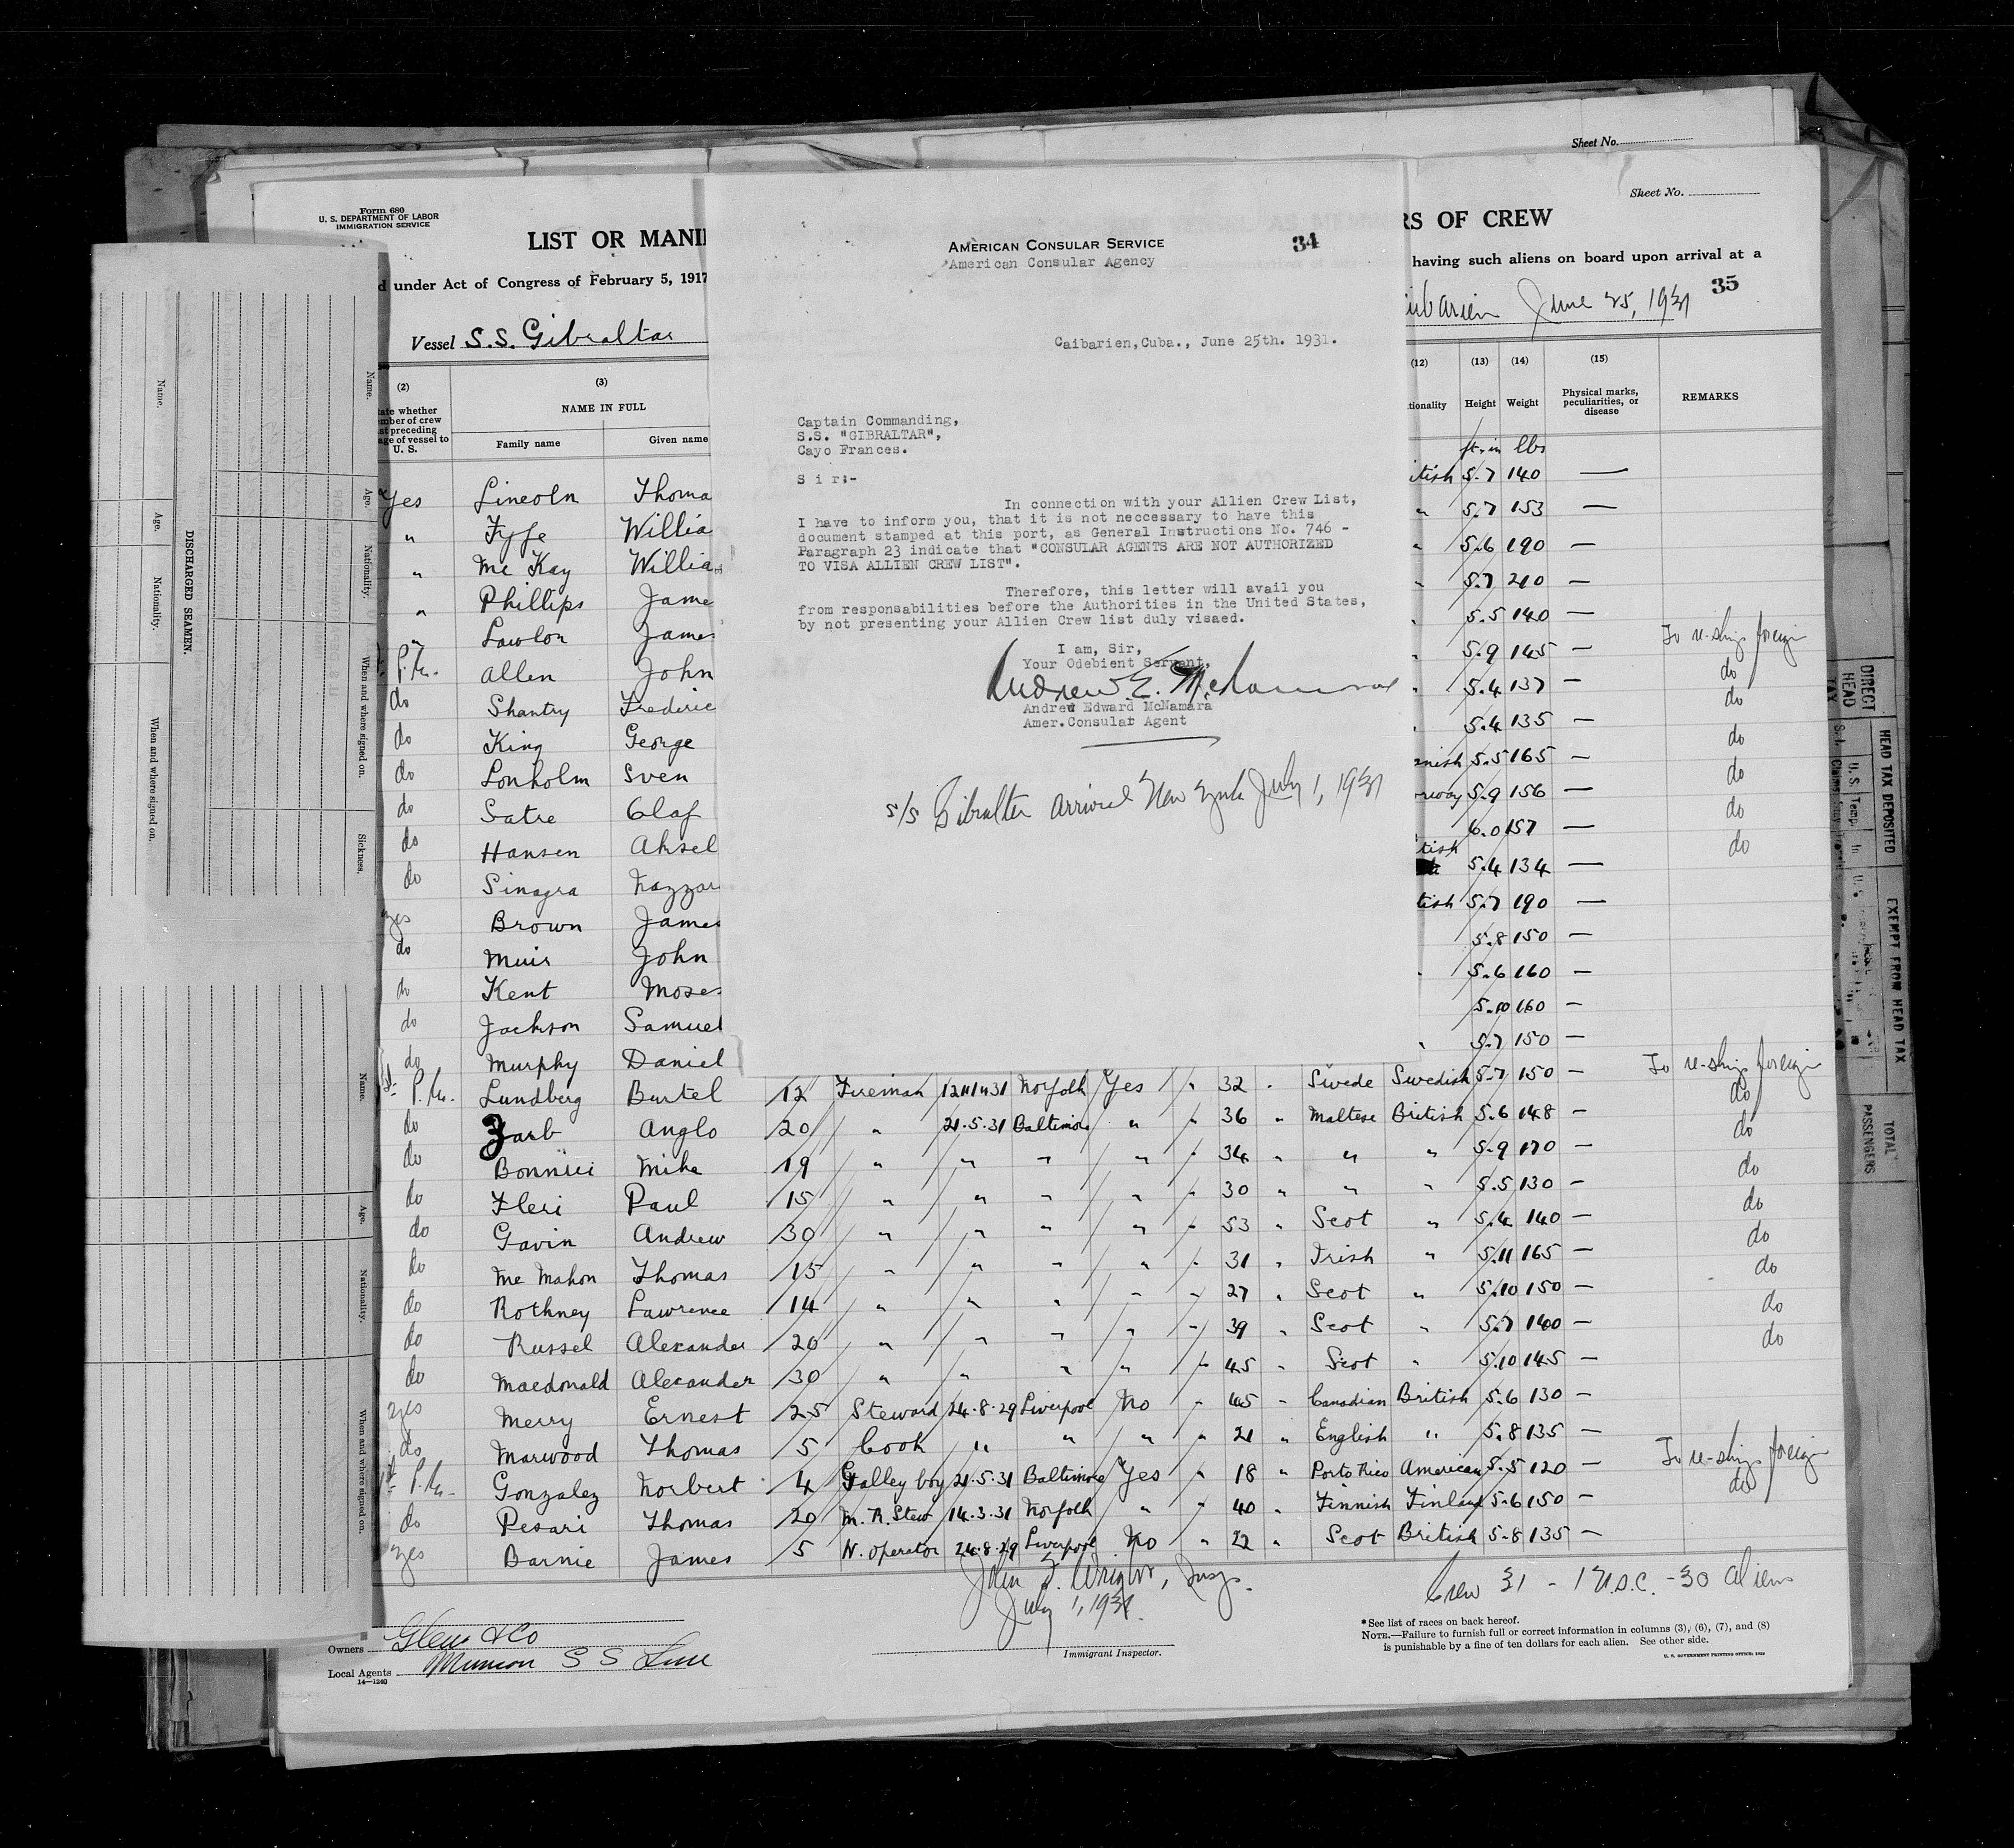 Sheet No.
Sheet No.
Form 680
U. S. DEPARTMENT OF LABOR
IMMIGRATION SERVICE
LIST OR MANI
RS OF CREW
d under Act of Congress of February 5, 1917
having such aliens on board upon arrival at a
35
Vessel S.S. Gibraltar
ibarien June 25, 1931
(2) (3)
ate whether
mber of crew
st preceding
age of vessel to
U. S.
NAME IN FULL
Family name Given name
(12) (13) (14) (15)
tionality Height Weight Physical marks, peculiarities, or disease REMARKS
ft. in lbs
AMERICAN CONSULAR SERVICE
34
American Consular Agency
Caibarien, Cuba., June 25th. 1931.
Captain Commanding,
S.S. "GIBRALTAR",
Cayo Frances.
S i r:-
In connection with your Allien Crew List,
I have to inform you, that it is not neccessary to have this
document stamped at this port, as General Instructions No. 746 -
Paragraph 23 indicate that "CONSULAR AGENTS ARE NOT AUTHORIZED
TO VISA ALLIEN CREW LIST".
Therefore, this letter will avail you
from responsabilities before the Authorities in the United States,
by not presenting your Allien Crew list duly visaed.
I am, Sir,
Your Odebient Servant,
Andrew E. McNamara
Andrew Edward McNamara
Amer.Consular Agent
s/s Gibralter arrived New York July 1, 1931
Yes Lincoln Thoma itish 5.7 140 —
" Fyffe Willia " 5.7 153 —
" Mc Kay Willia " 5.6 190 —
" Phillips Jame " 5.7 210 —
" Lawlor James 5.5 140 —
Allen John 5.9 145 — To re-ship foreign
do Shantry Frederic 5.4 137 — do
do King George 5.4 135 — do
do Lonholm Sven anish 5.5 165 — do
do Satre Olaf orway 5.9 156 — do
do Hansen Aksel 6.0 157 — do
do Sinagra Nazzar tish 5.4 134 — do
yes Brown James tish 5.7 190 —
do Muir John 5.8 150 —
do Kent Moses 5.6 160 —
do Jackson Samuel 5.10 160 —
do Murphy Daniel 5.7 150 —
Lundberg Burtel 12 Fireman 31 Norfolk Yes " 32 " Swede Swedish 5.7 150 — To re-ship foreign
do Zarb Anglo 20 " 21.5.31 Baltimore " " 36 " Maltese British 5.6 148 — do
do Mike 19 " " " " " 34 " " " 5.9 170 — do
do Fleri Paul 15 " " " " " 30 " " " 5.5 130 — do
do Gavin Andrew 30 " " " " " 53 " Scot " 5.4 140 — do
do Mc Mahon Thomas 15 " " " " " 31 " Irish " 5.11 165 — do
do Rothney Lawrence 14 " " " " " 27 " Scot " 5.10 150 — do
do Russel Alexander 20 " " " " " 39 " Scot " 5.7 140 — do
do Macdonald Alexander 30 " " " " " 45 " Scot " 5.10 145 — do
yes Merry Ernest 25 Steward 24.8.29 Liverpool No " 45 " Canadian British 5.6 130 —
do Marwood Thomas 5 Cook " " " " 21 " English " 5.8 135 —
Gonzalez Norbert 4 Galley boy 21.5.31 Baltimore Yes " 18 " Porto Rico American 5.5 120 — To re-ship foreign
do Pesari Thomas 20 M. R. Stew 14.3.31 Norfolk " " 40 " Finnish Finland 5.6 150 — do
yes Barnie James 5 W. Operator 24.8.29 Liverpool No " 22 " Scot British 5.8 135 —
July 1, 1931.
Crew 31 - 1 U.S.C. - 30 aliens
Owners Glen & Co
Local Agents Munson S S Line
14—1240
Immigrant Inspector.
*See list of races on back hereof.
NOTE.—Failure to furnish full or correct information in columns (3), (6), (7), and (8)
is punishable by a fine of ten dollars for each alien. See other side.
DISCHARGED SEAMEN.
Name. Age. Nationality. When and where signed on.
Name. Age. Nationality. When and where signed on. Sickness.
Name. Age. Nationality. When and where signed on.
DIRECT HEAD TAX
HEAD TAX DEPOSITED
EXEMPT FROM HEAD TAX
TOTAL PASSENGERS